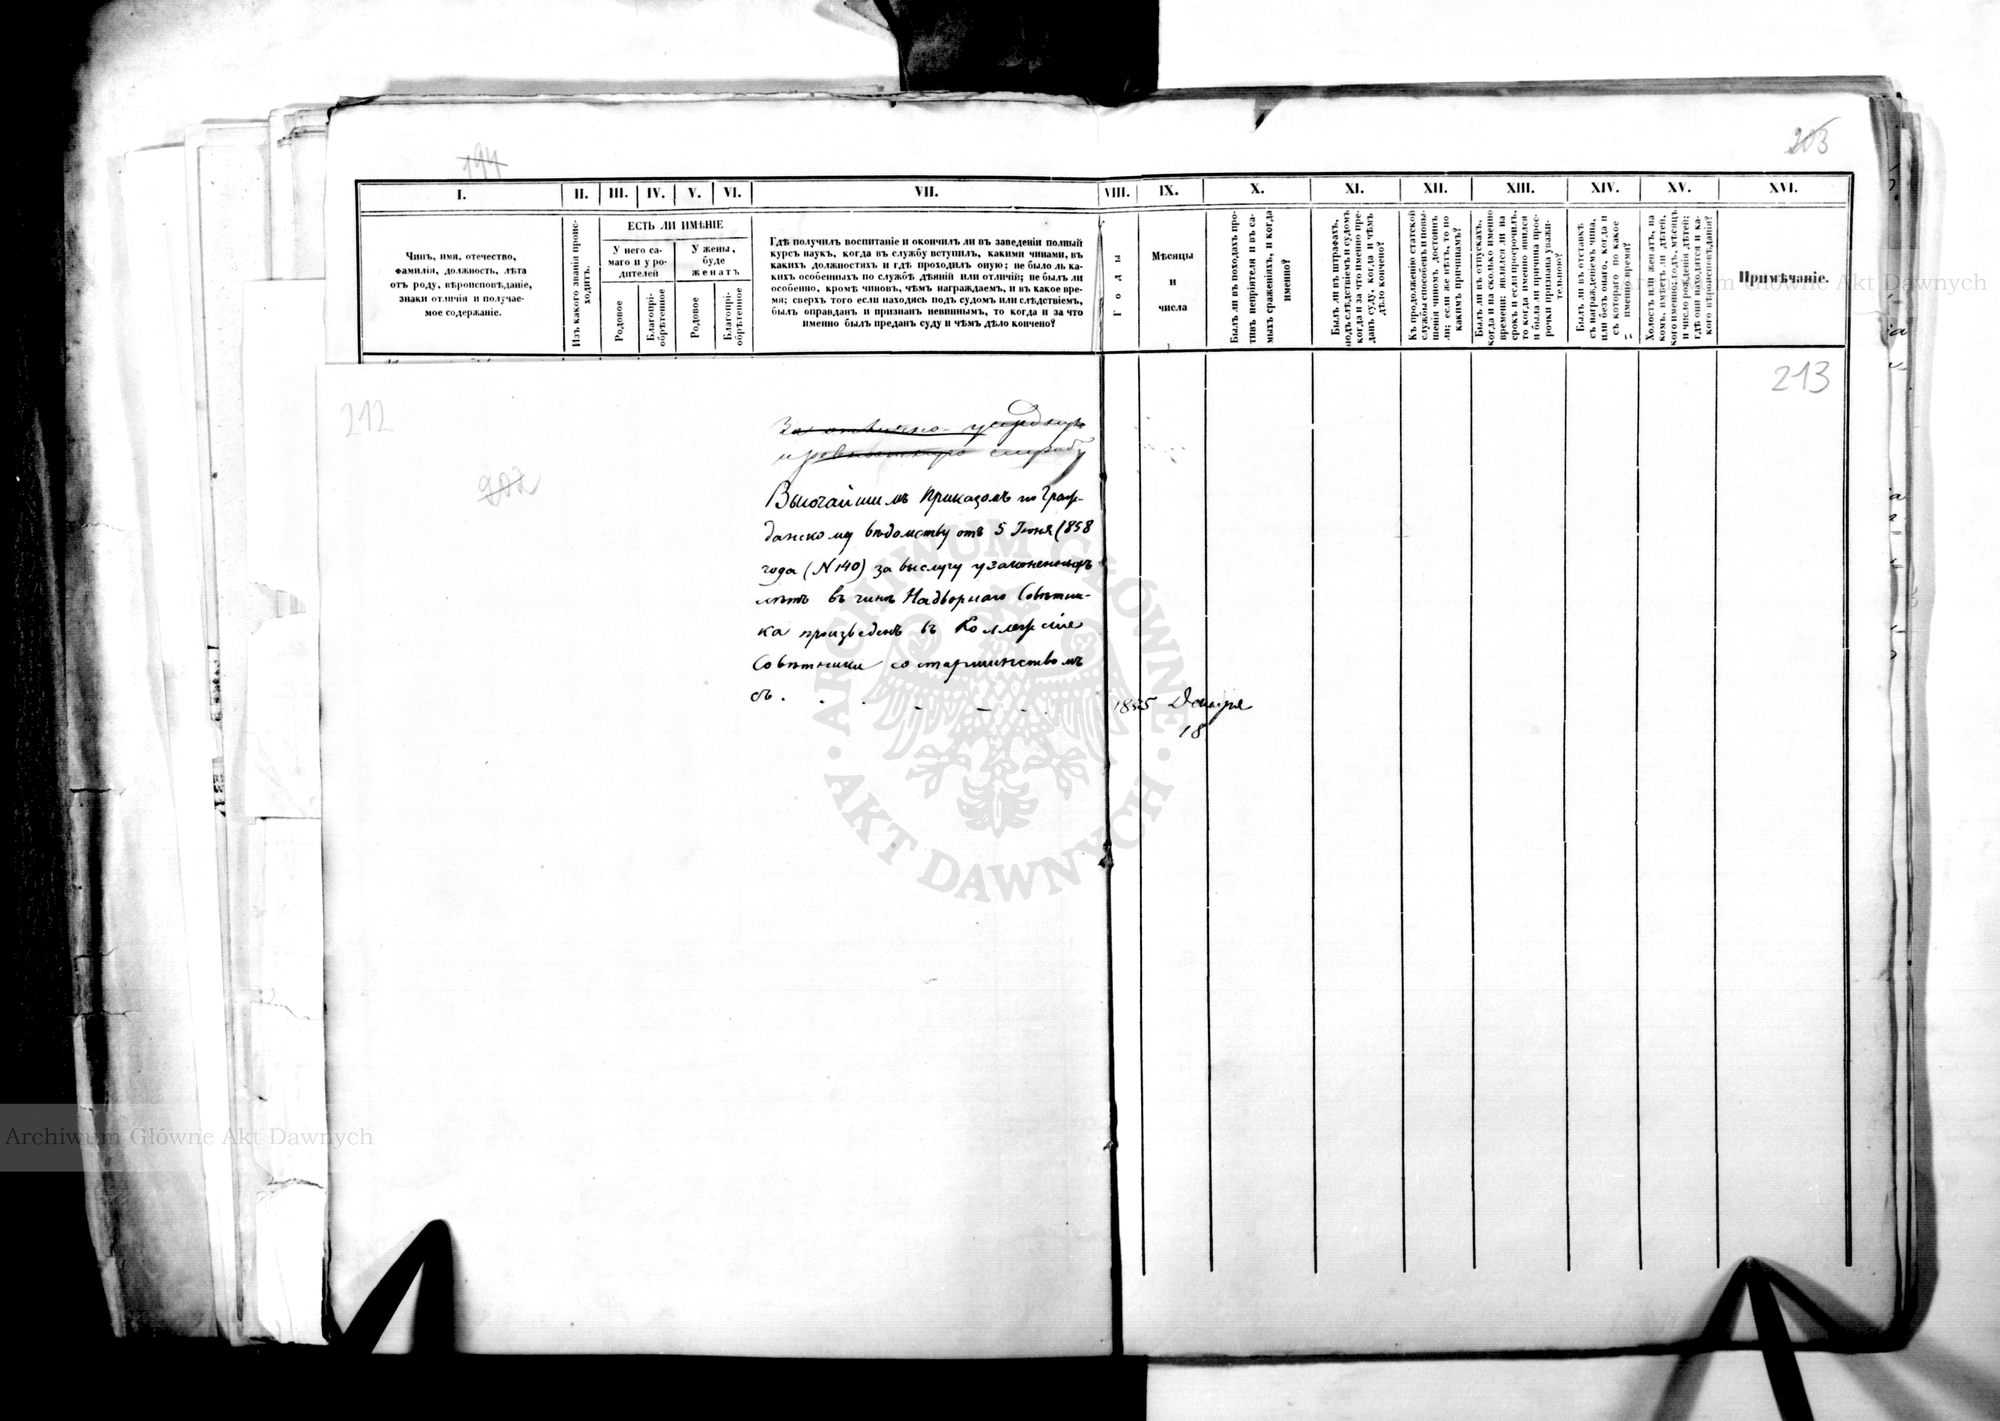 194
203
I.
II.
III.
IV.
V.
VI.
VII.
VIII.
IX.
X.
XI.
XII.
XIII.
XIV.
XV.
XVI.
Чинъ, имя, отечество,
фамилія, должность, лѣта
отъ роду, вѣроисповѣданіе,
знаки отличія и получае-
мое содержаніе.
Изъ какого званія проис-
ходитъ.
ЕСТЬ ЛИ ИМѢНІЕ
У него са-
маго и у ро-
дителей
У жены,
буде
женатъ
Родовое
Благопрі-
обрѣтенное
Родовое
Благопрі-
обрѣтенное
Гдѣ получилъ воспитаніе и окончилъ ли въ заведеніи полный
курсъ наукъ, когда въ службу вступилъ, какими чинами, въ
какихъ должностяхъ и гдѣ проходилъ оную; не было ль ка-
кихъ особенныхъ по службѣ дѣяній или отличій; не былъ ли
особенно, кромѣ чиновъ, чѣмъ награждаемъ, и въ какое вре-
мя; сверхъ того если находясь подъ судомъ или слѣдствіемъ,
былъ оправданъ и признанъ невиннымъ, то когда и за что
именно былъ преданъ суду и чѣмъ дѣло кончено?
Годы
Мѣсяцы
и
числа
Былъ ли въ походахъ про-
тивъ непріятеля и въ са-
мыхъ сраженіяхъ, и когда
именно?
Былъ ли въ штрафахъ,
подъ слѣдствіемъ и судомъ,
когда и за что именно пре-
данъ суду, когда и чѣмъ
дѣло кончено?
Къ продолженію статской
службы способенъ и повы-
шенія чиномъ достоинъ
ли; если же нѣтъ, то по
какимъ причинамъ?
Былъ ли въ отпускахъ,
когда и на сколько именно
времени; являлся ли на
срокъ и если просрочилъ,
то когда именно явился
и была ли причина прос-
рочки признана уважи-
тельною?
Былъ ли въ отставкѣ
съ награжденіемъ чина,
или безъ онаго, когда и
съ котораго по какое
именно время?
Холостъ или женатъ, на
комъ, имѣетъ ли дѣтей,
кого именно; годъ, мѣсяцъ
и число рожденія дѣтей;
гдѣ они находятся и ка-
кого вѣроисповѣданія?
Примѣчаніе.
212
213
202
За отлично-усердную
службу
Высочайшимъ Приказомъ по Граж-
данскому вѣдомству отъ 5 Іюня 1858
года (N 140) за выслугу узаконенныхъ
лѣтъ въ чинѣ Надворнаго Совѣтни-
ка произведенъ въ Коллежскіе
Совѣтники со старшинствомъ
съ . . . - - .
1855 Декабря
18
ARCHIWUM GŁÓWNE AKT DAWNYCH
Archiwum Główne Akt Dawnych
Archiwum Główne Akt Dawnych